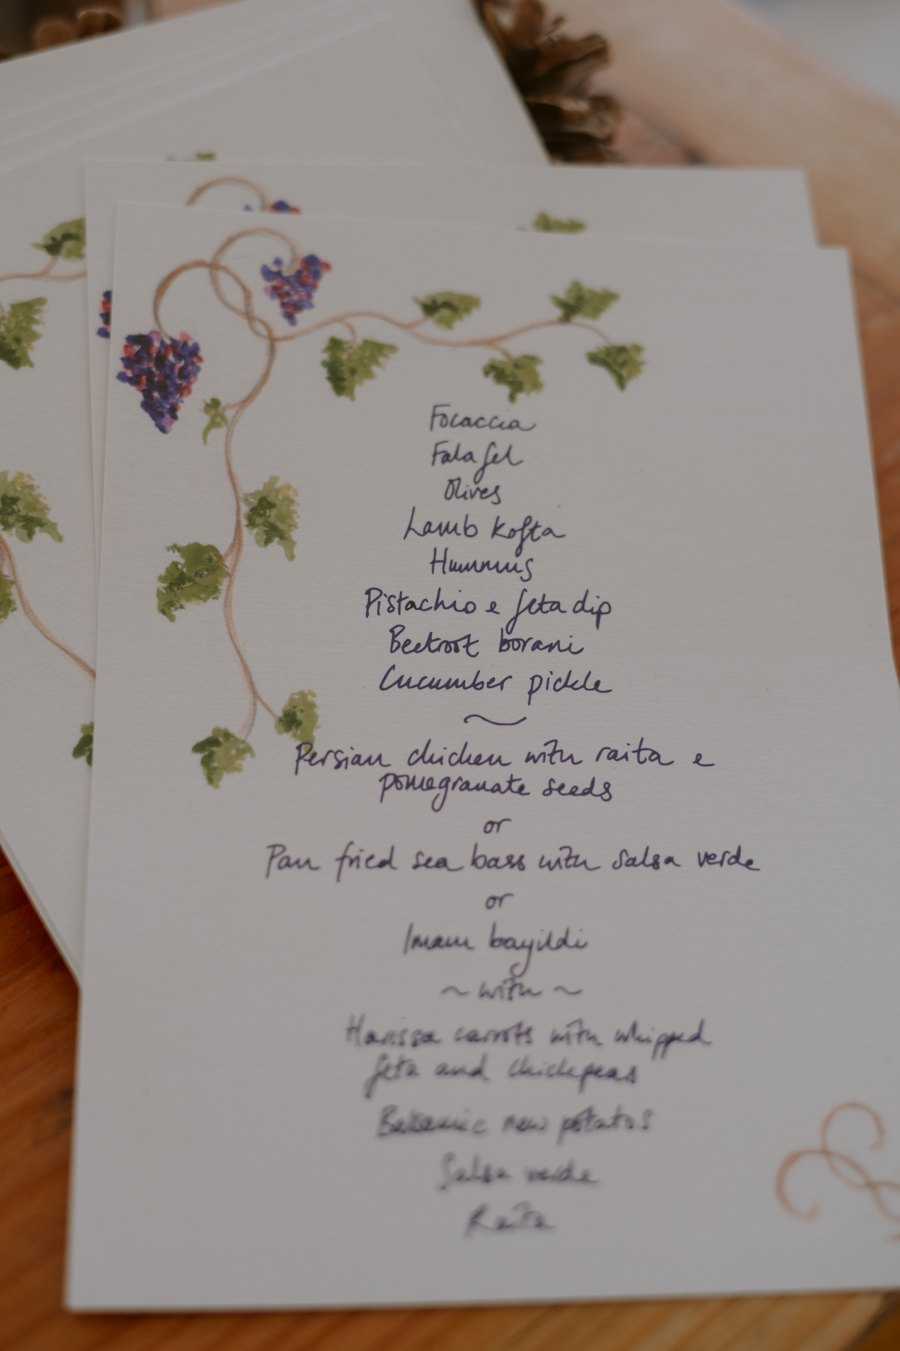 Focaccia
Falafel
Olives
Lamb kofta
Hummus
Pistachio e feta dip
Beetroot borani
Cucumber pickle
~
Persian chicken with raita e
pomegranate seeds
or
Pan fried sea bass with salsa verde
or
Imam bayildi
~ with ~
Harissa carrots with whipped
feta and chickpeas
Balsamic new potatoes
Salsa verde
Raita